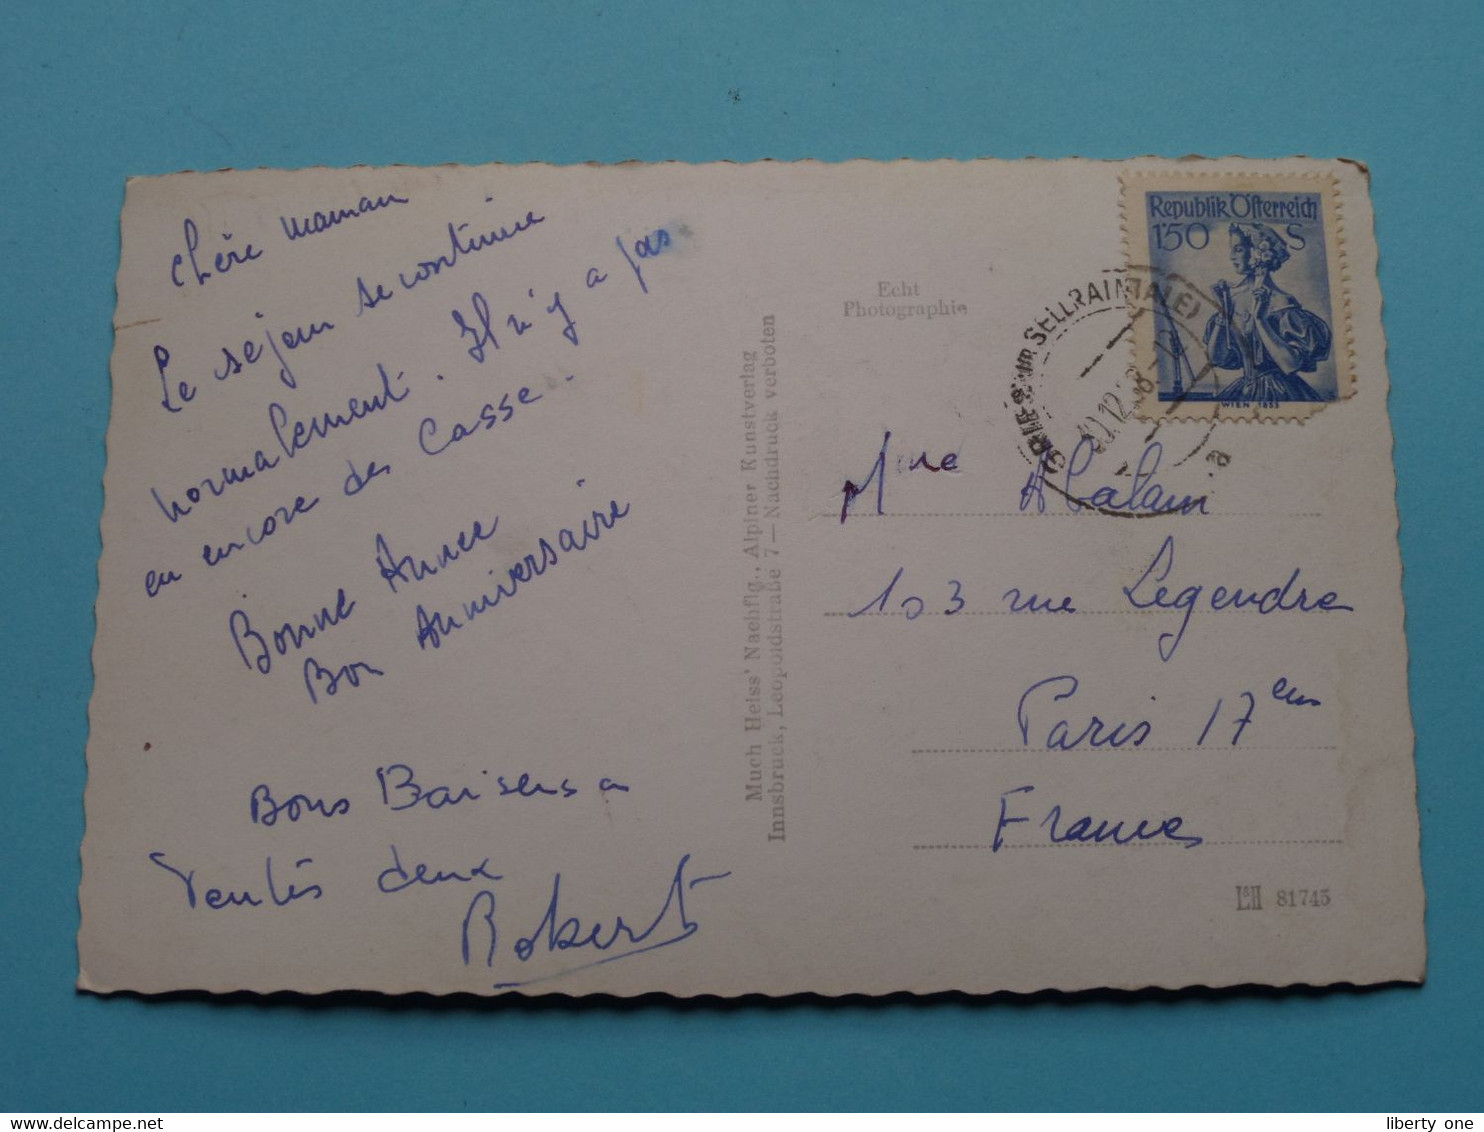 chère maman
Le séjour se continue
normalement. Il n'y a pas
eu encore des casse.
Bonne Année
Bon Anniversaire
Bons Baisers a
deux
Robert
Much Heiss' Nachflg., Alpiner Kunstverlag
Innsbruck, Leopoldstraße 7 — Nachdruck verboten
Echt
Photographie
Republik Österreich
1'50 S
WIEN 1853
SELLRAIN
a
Mme
103 rue Legendre
Paris 17em
France
81745
liberty one